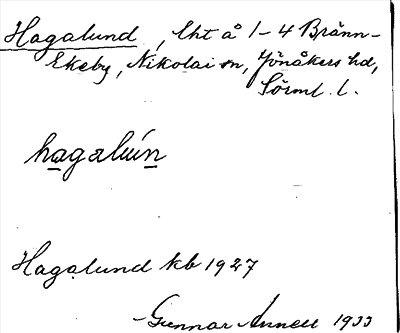 Hagalund, lht å 1-4 Bränn-
Ekeby, Nikolai sn, Jönåkers hd,
Sörml. l.
hagalun
Hagalund kb 1927
Gunnar 1933